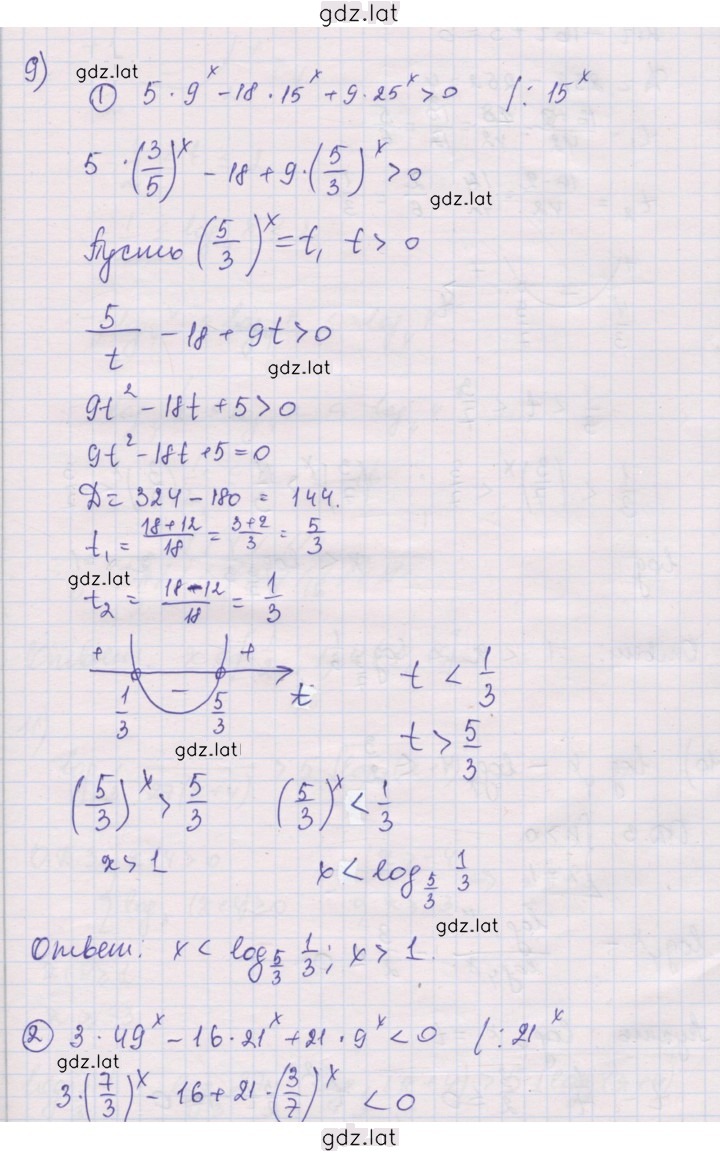 gdz.lat
9)
gdz.lat
① 5 · 9^x − 18 · 15^x + 9 · 25^x > 0 /: 15^x
5 · (3/5)^x − 18 + 9 · (5/3)^x > 0
gdz.lat
Пусть (5/3)^x = t, t > 0
5/t − 18 + 9t > 0
gdz.lat
9t^2 − 18t + 5 > 0
9t^2 − 18t + 5 = 0
D = 324 − 180 = 144.
t₁ = (18+12)/18 = (3+2)/3 = 5/3
gdz.lat
t₂ = (18−12)/18 = 1/3
+ − + t
1/3 5/3
t < 1/3
t > 5/3
gdz.lat
(5/3)^x > 5/3 (5/3)^x < 1/3
x > 1 x < log_{5/3} 1/3
gdz.lat
Ответ: x < log_{5/3} 1/3; x > 1.
② 3 · 49^x − 16 · 21^x + 21 · 9^x < 0 /: 21^x
gdz.lat
3 · (7/3)^x − 16 + 21 · (3/7)^x < 0
gdz.lat